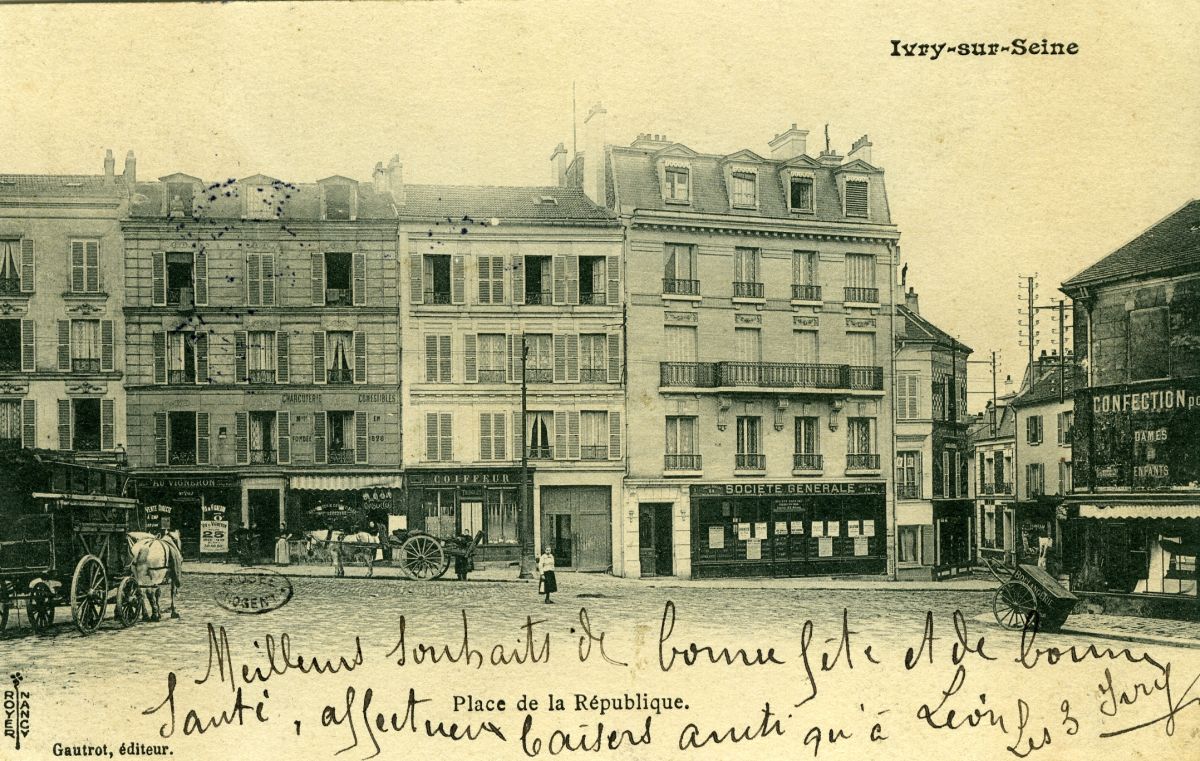 Ivry-sur-Seine
CHARCUTERIE COMESTIBLES
Mon FONDÉE EN 1878
AU VIGNERON
COIFFEUR
SOCIÉTÉ GÉNÉRALE
CONFECTION POUR
DAMES
&
ENFANTS
25
Meilleurs souhaits de bonne fête et de bonne
Santé, affectueux baisers ainsi qu'à Léon
Les 3 Ivry
Place de la République.
ROYER
NANCY
Gautrot, éditeur.